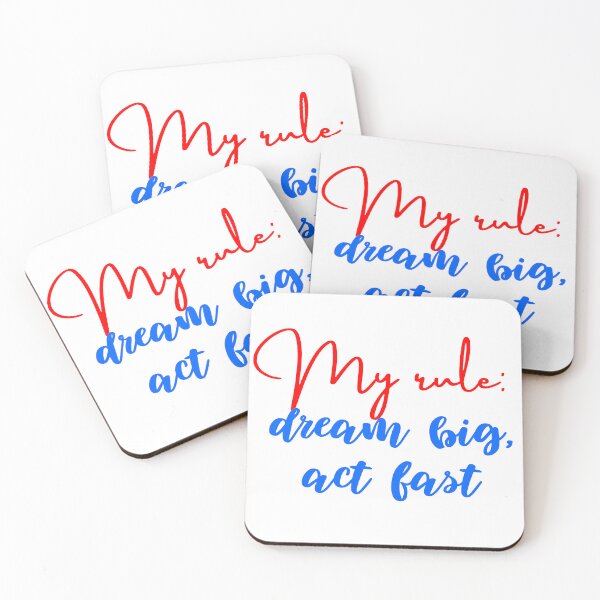 My rule:
My rule:
dream big,
act fast
My rule:
dream big,
act
My rule:
dream big,
act fast